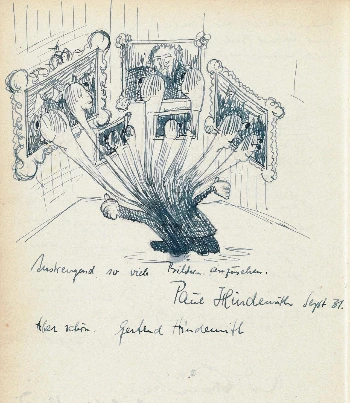 Anstrengend so viele Bilder anzusehen.
Paul Hindemith Sept 39.
Aber schön. Gertrud Hindemith